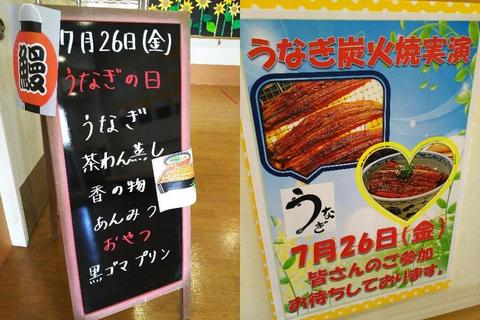 鰻
7月26日(金)
うなぎの日
うなぎ
茶わん蒸し
香の物
あんみつ
おやつ
黒ゴマプリン
うなぎ炭火焼実演
うなぎ
7月26日(金)
皆さんのご参加
お待ちしております。